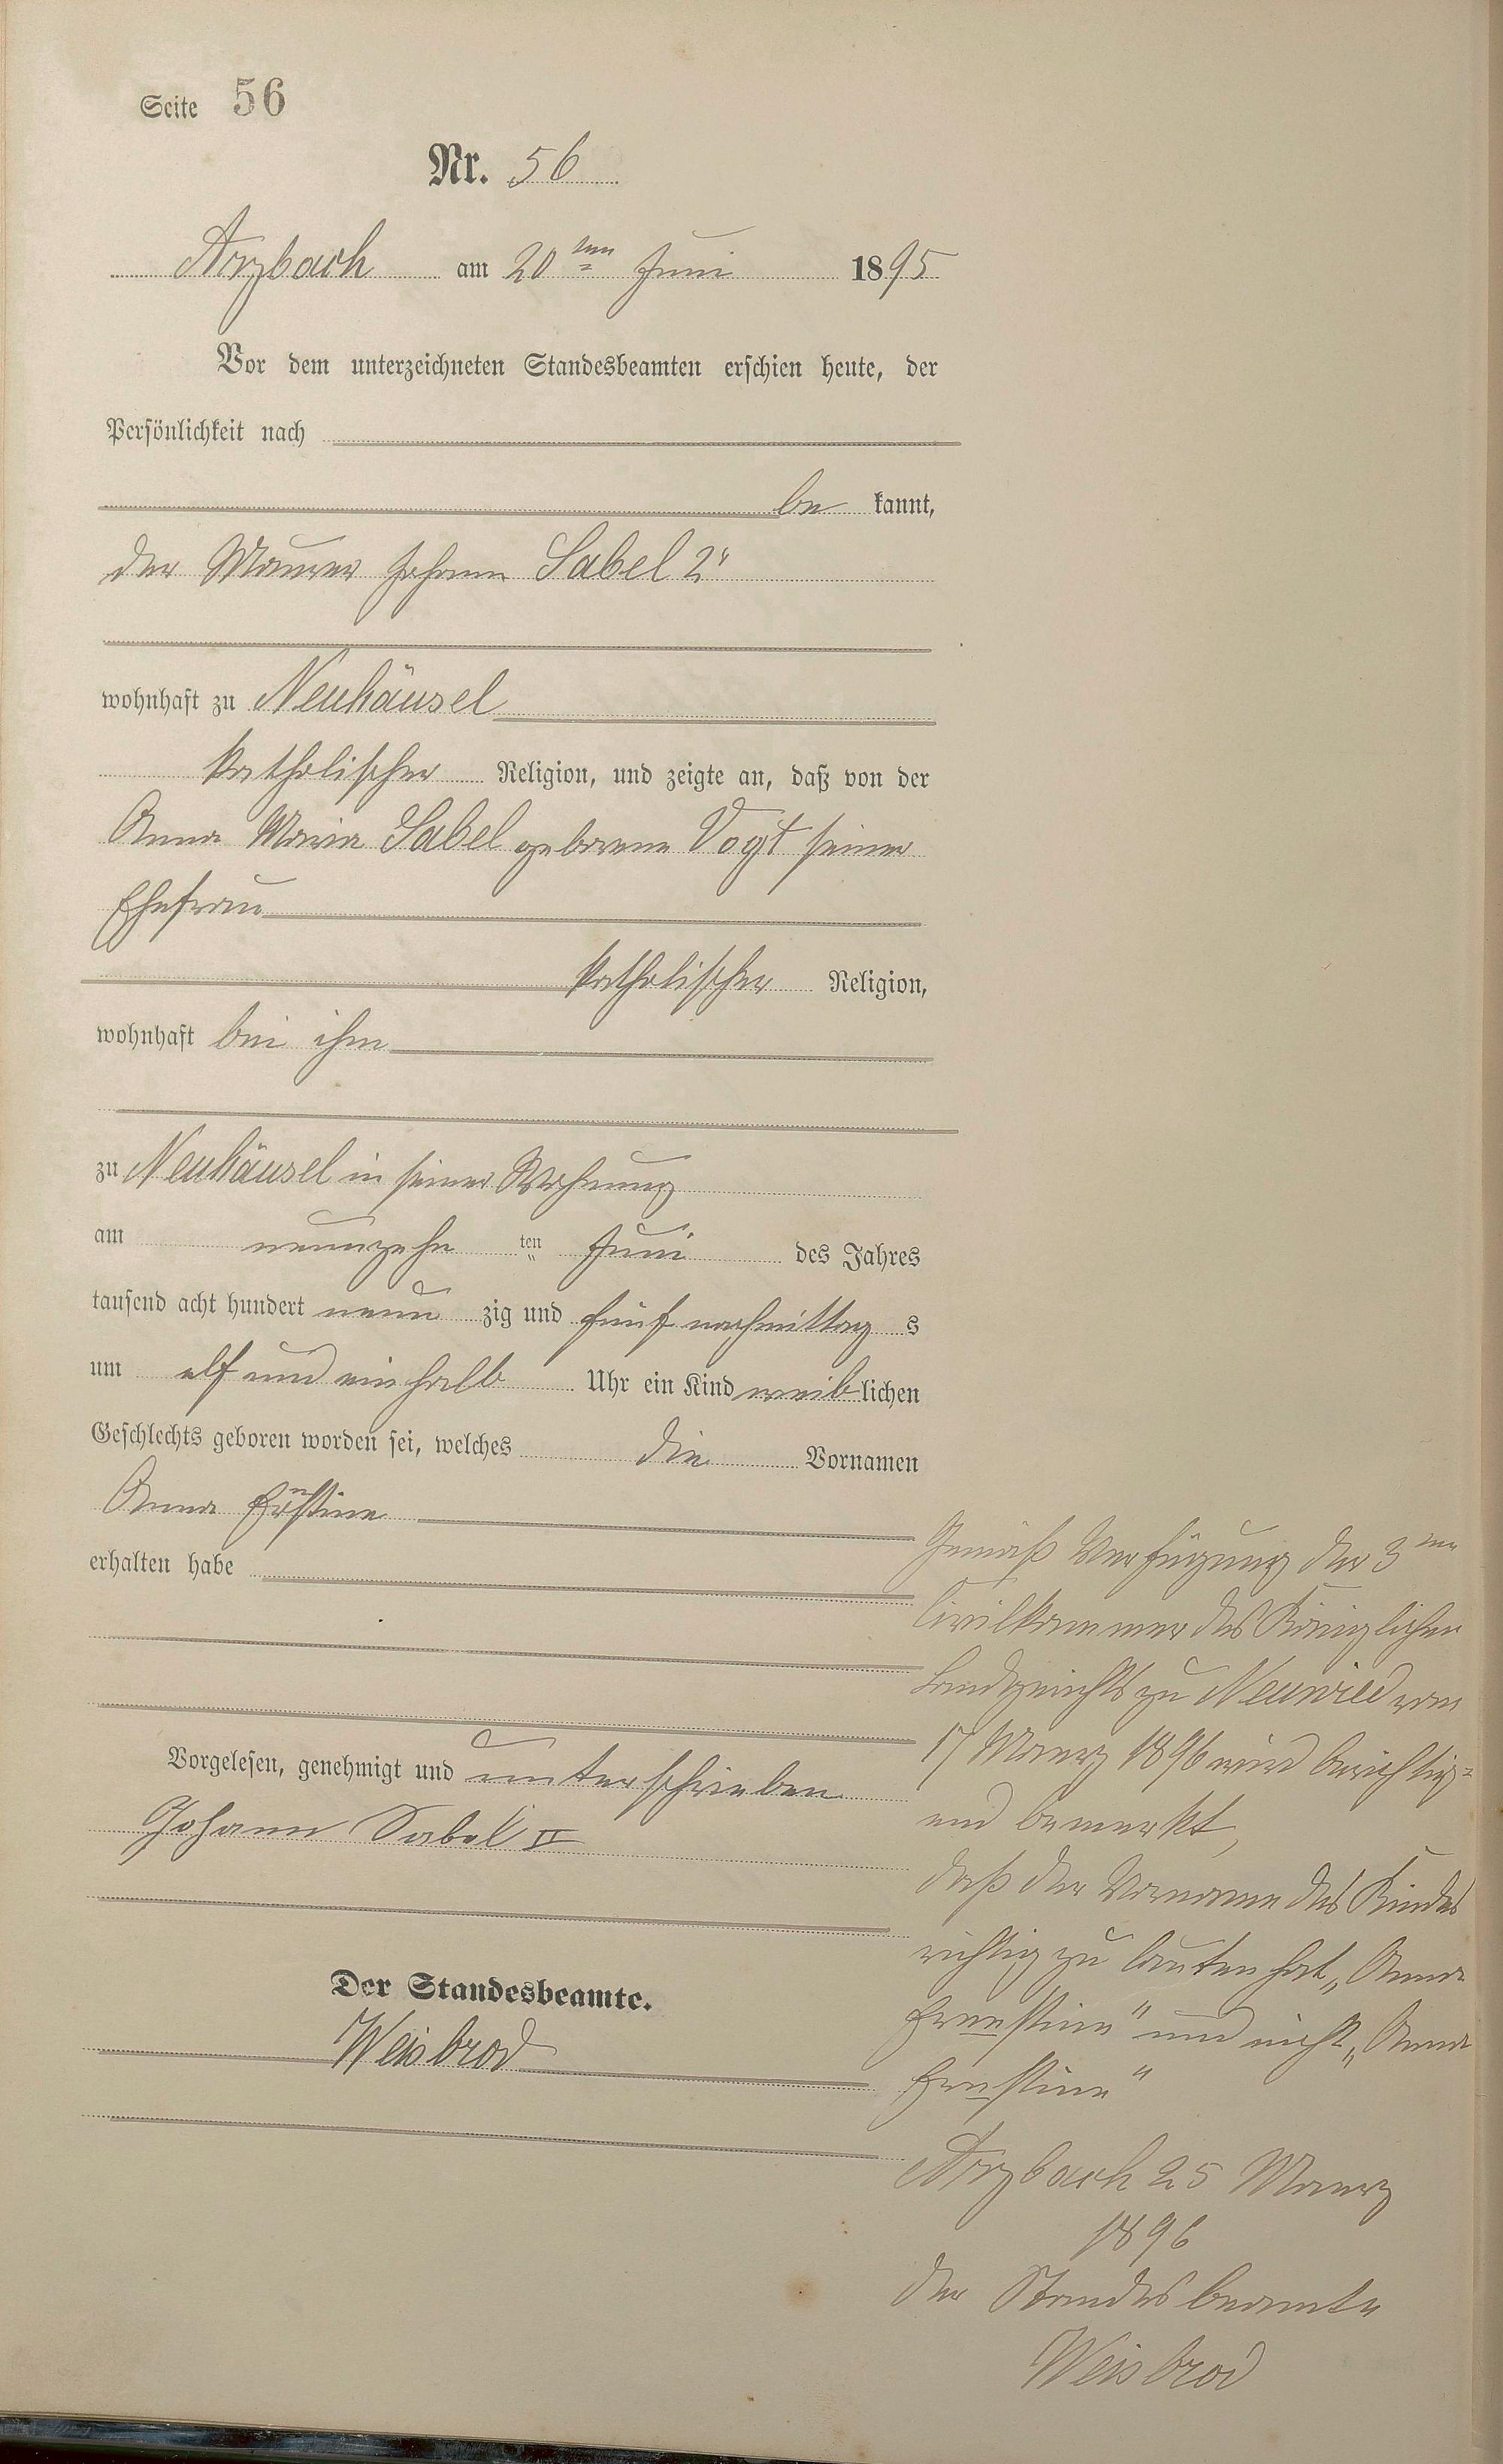 Seite 56
Nr. 56
Arzbach am 20ten Juni 1895
Vor dem unterzeichneten Standesbeamten erschien heute, der
Persönlichkeit nach
be kannt,
der Maurer Johann Sabel 2r
wohnhaft zu Neuhäusel
katholischer Religion, und zeigte an, daß von der
Anna Maria Sabel geborene Vogt seiner
Ehefrau
katholischer Religion,
wohnhaft bei ihm
zu Neuhäusel in seiner Wohnung
am neunzehn ten Juni des Jahres
tausend acht hundert neun zig und fünf nachmittag s
um elf und ein halb Uhr ein Kind weib lichen
Geschlechts geboren worden sei, welches die Vornamen
Anna
erhalten habe
Vorgelesen, genehmigt und unterschrieben
Johann Sabel II
Der Standesbeamte.
Weisbrod
Gemäß Verfügung der 3ten
Civilkammer des Königlichen
Landgerichts zu Neuwied vom
17 Maerz 1896 wird berichtig=
end bemerkt,
daß der Vorname des Kindes
richtig zu lauten hat „Anna
Ernestine" und nicht „Anna
Arzbach 25 Maerz
1896
Der Standesbeamte
Weisbrod